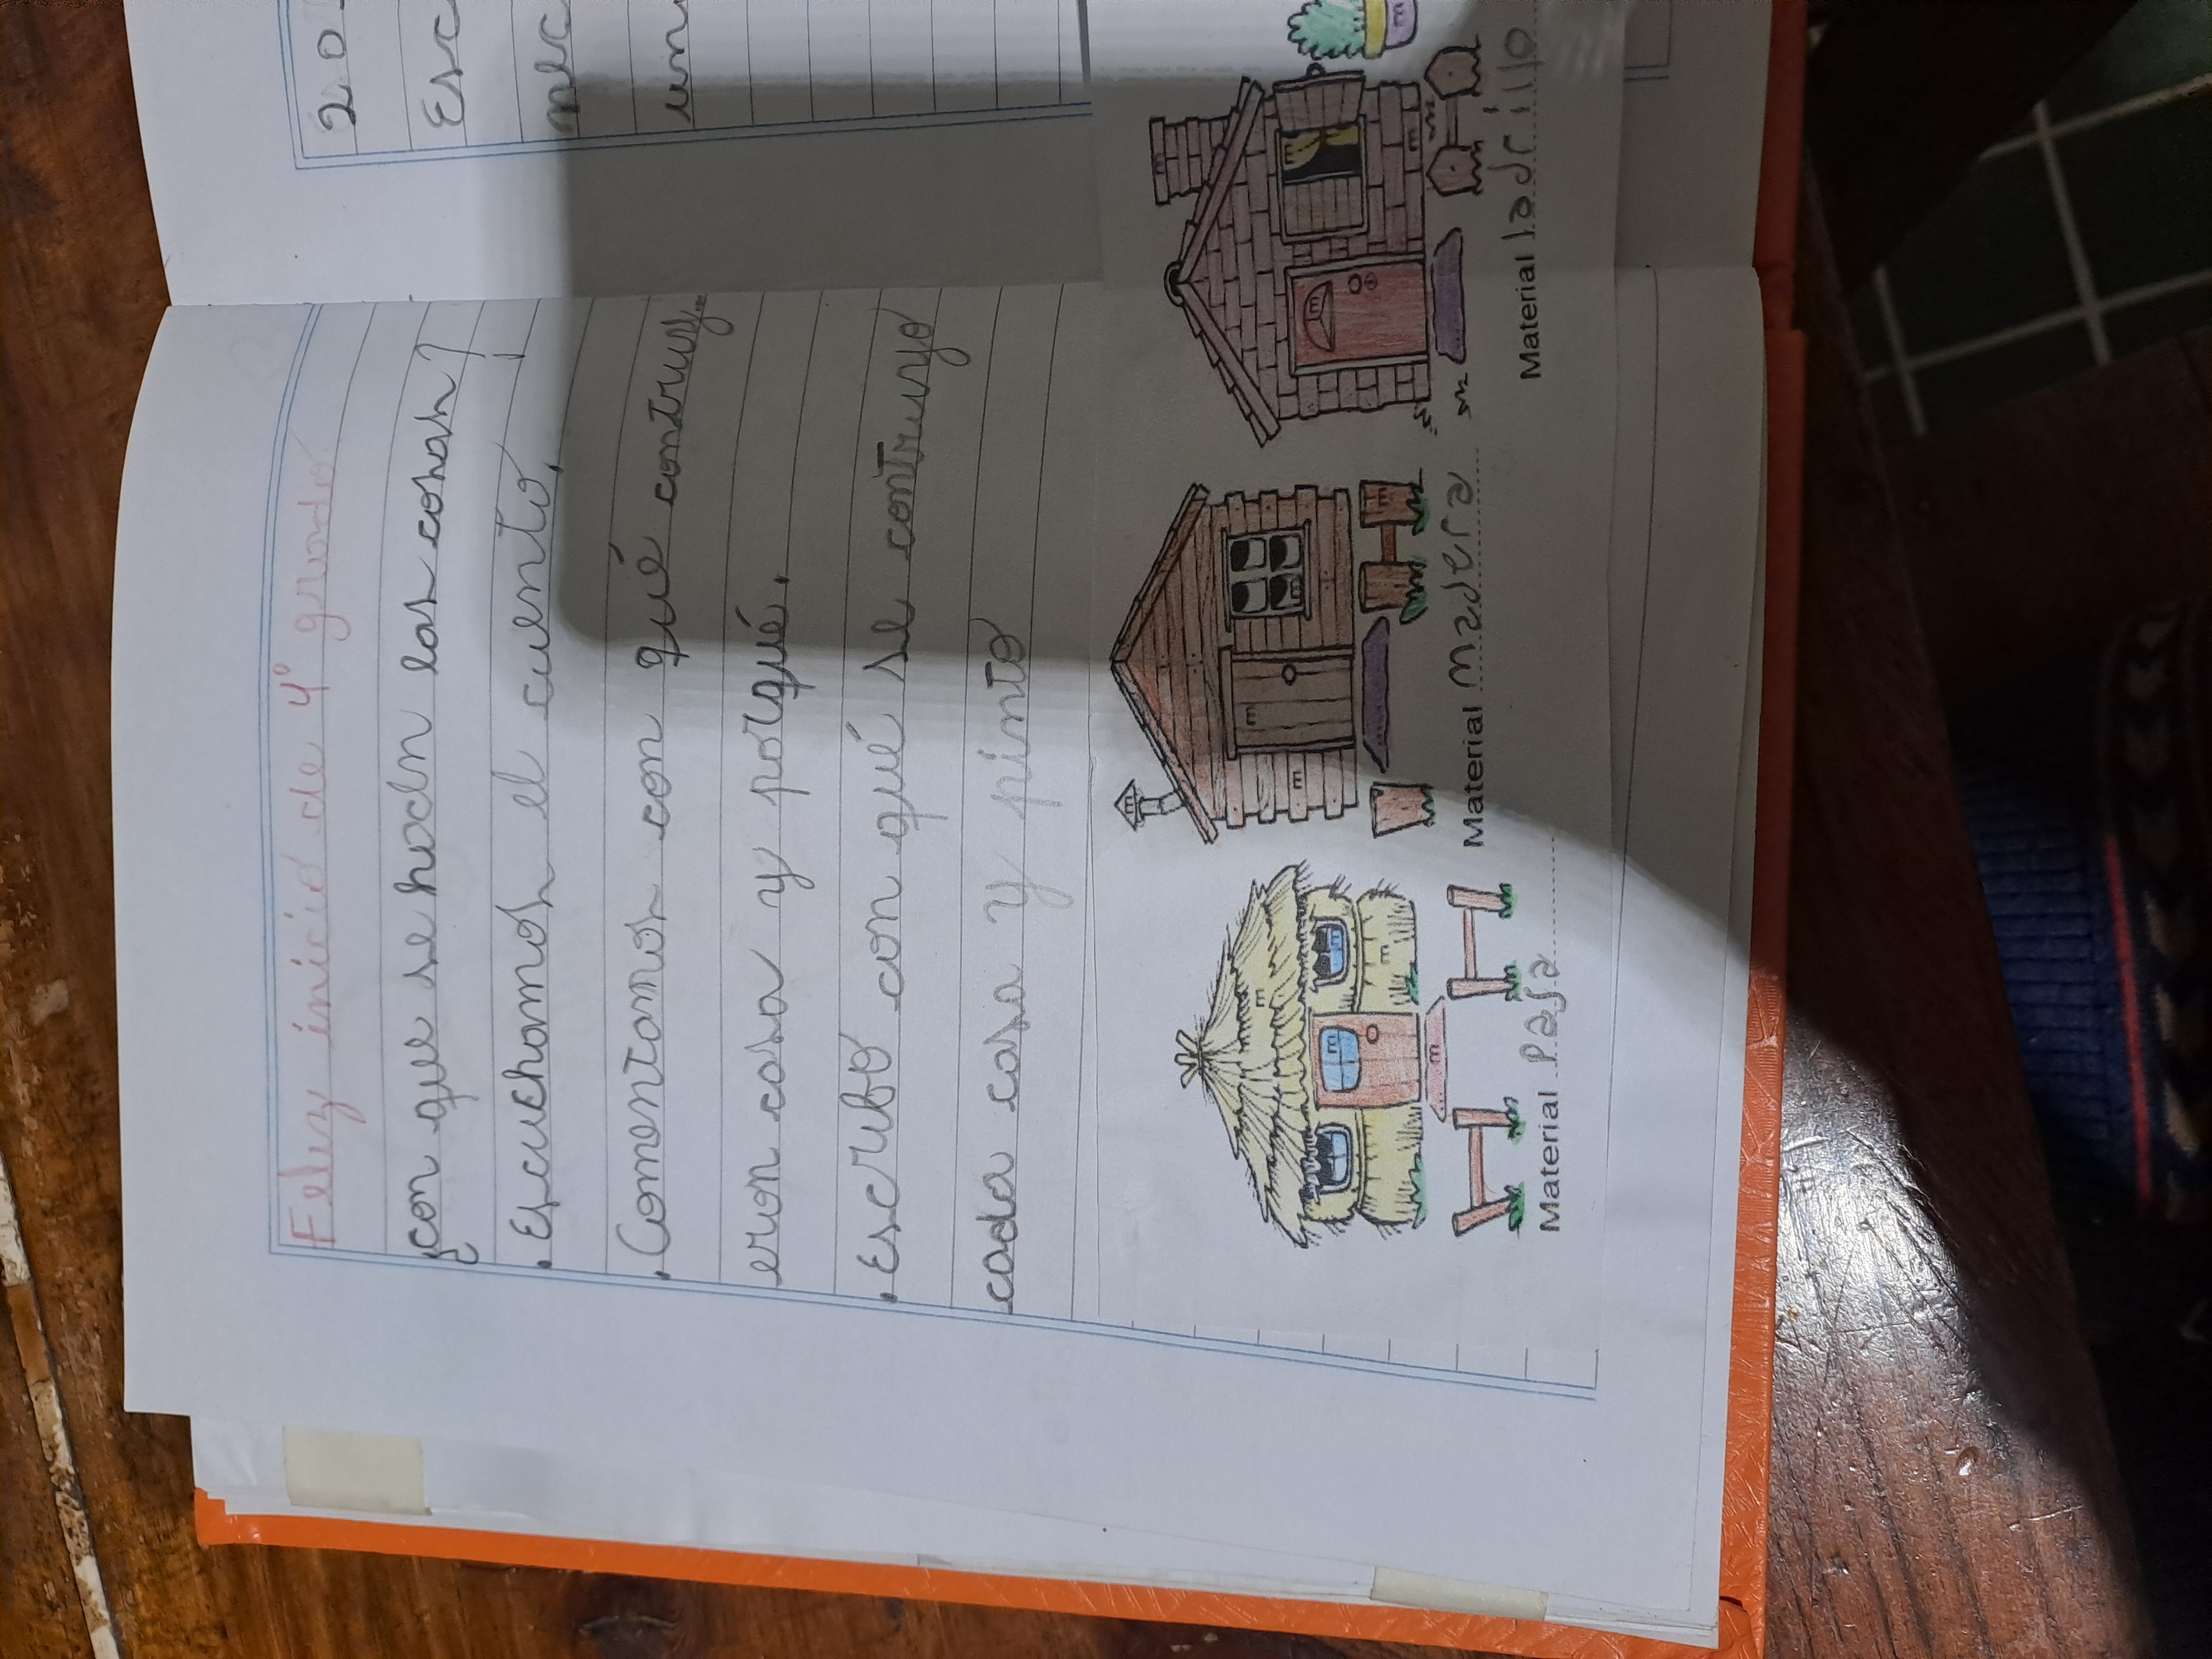 Feliz inicio de 4° grado
¿con que se hacen las casas?
. Escuchamos el cuento.
. Comentamos con qué contruy.
eron casa y porqué.
. Escribo con qué se contruyo
cada casa y pinto
Material paja
Material madera
Material ladrillo
20
Esc
nec
un